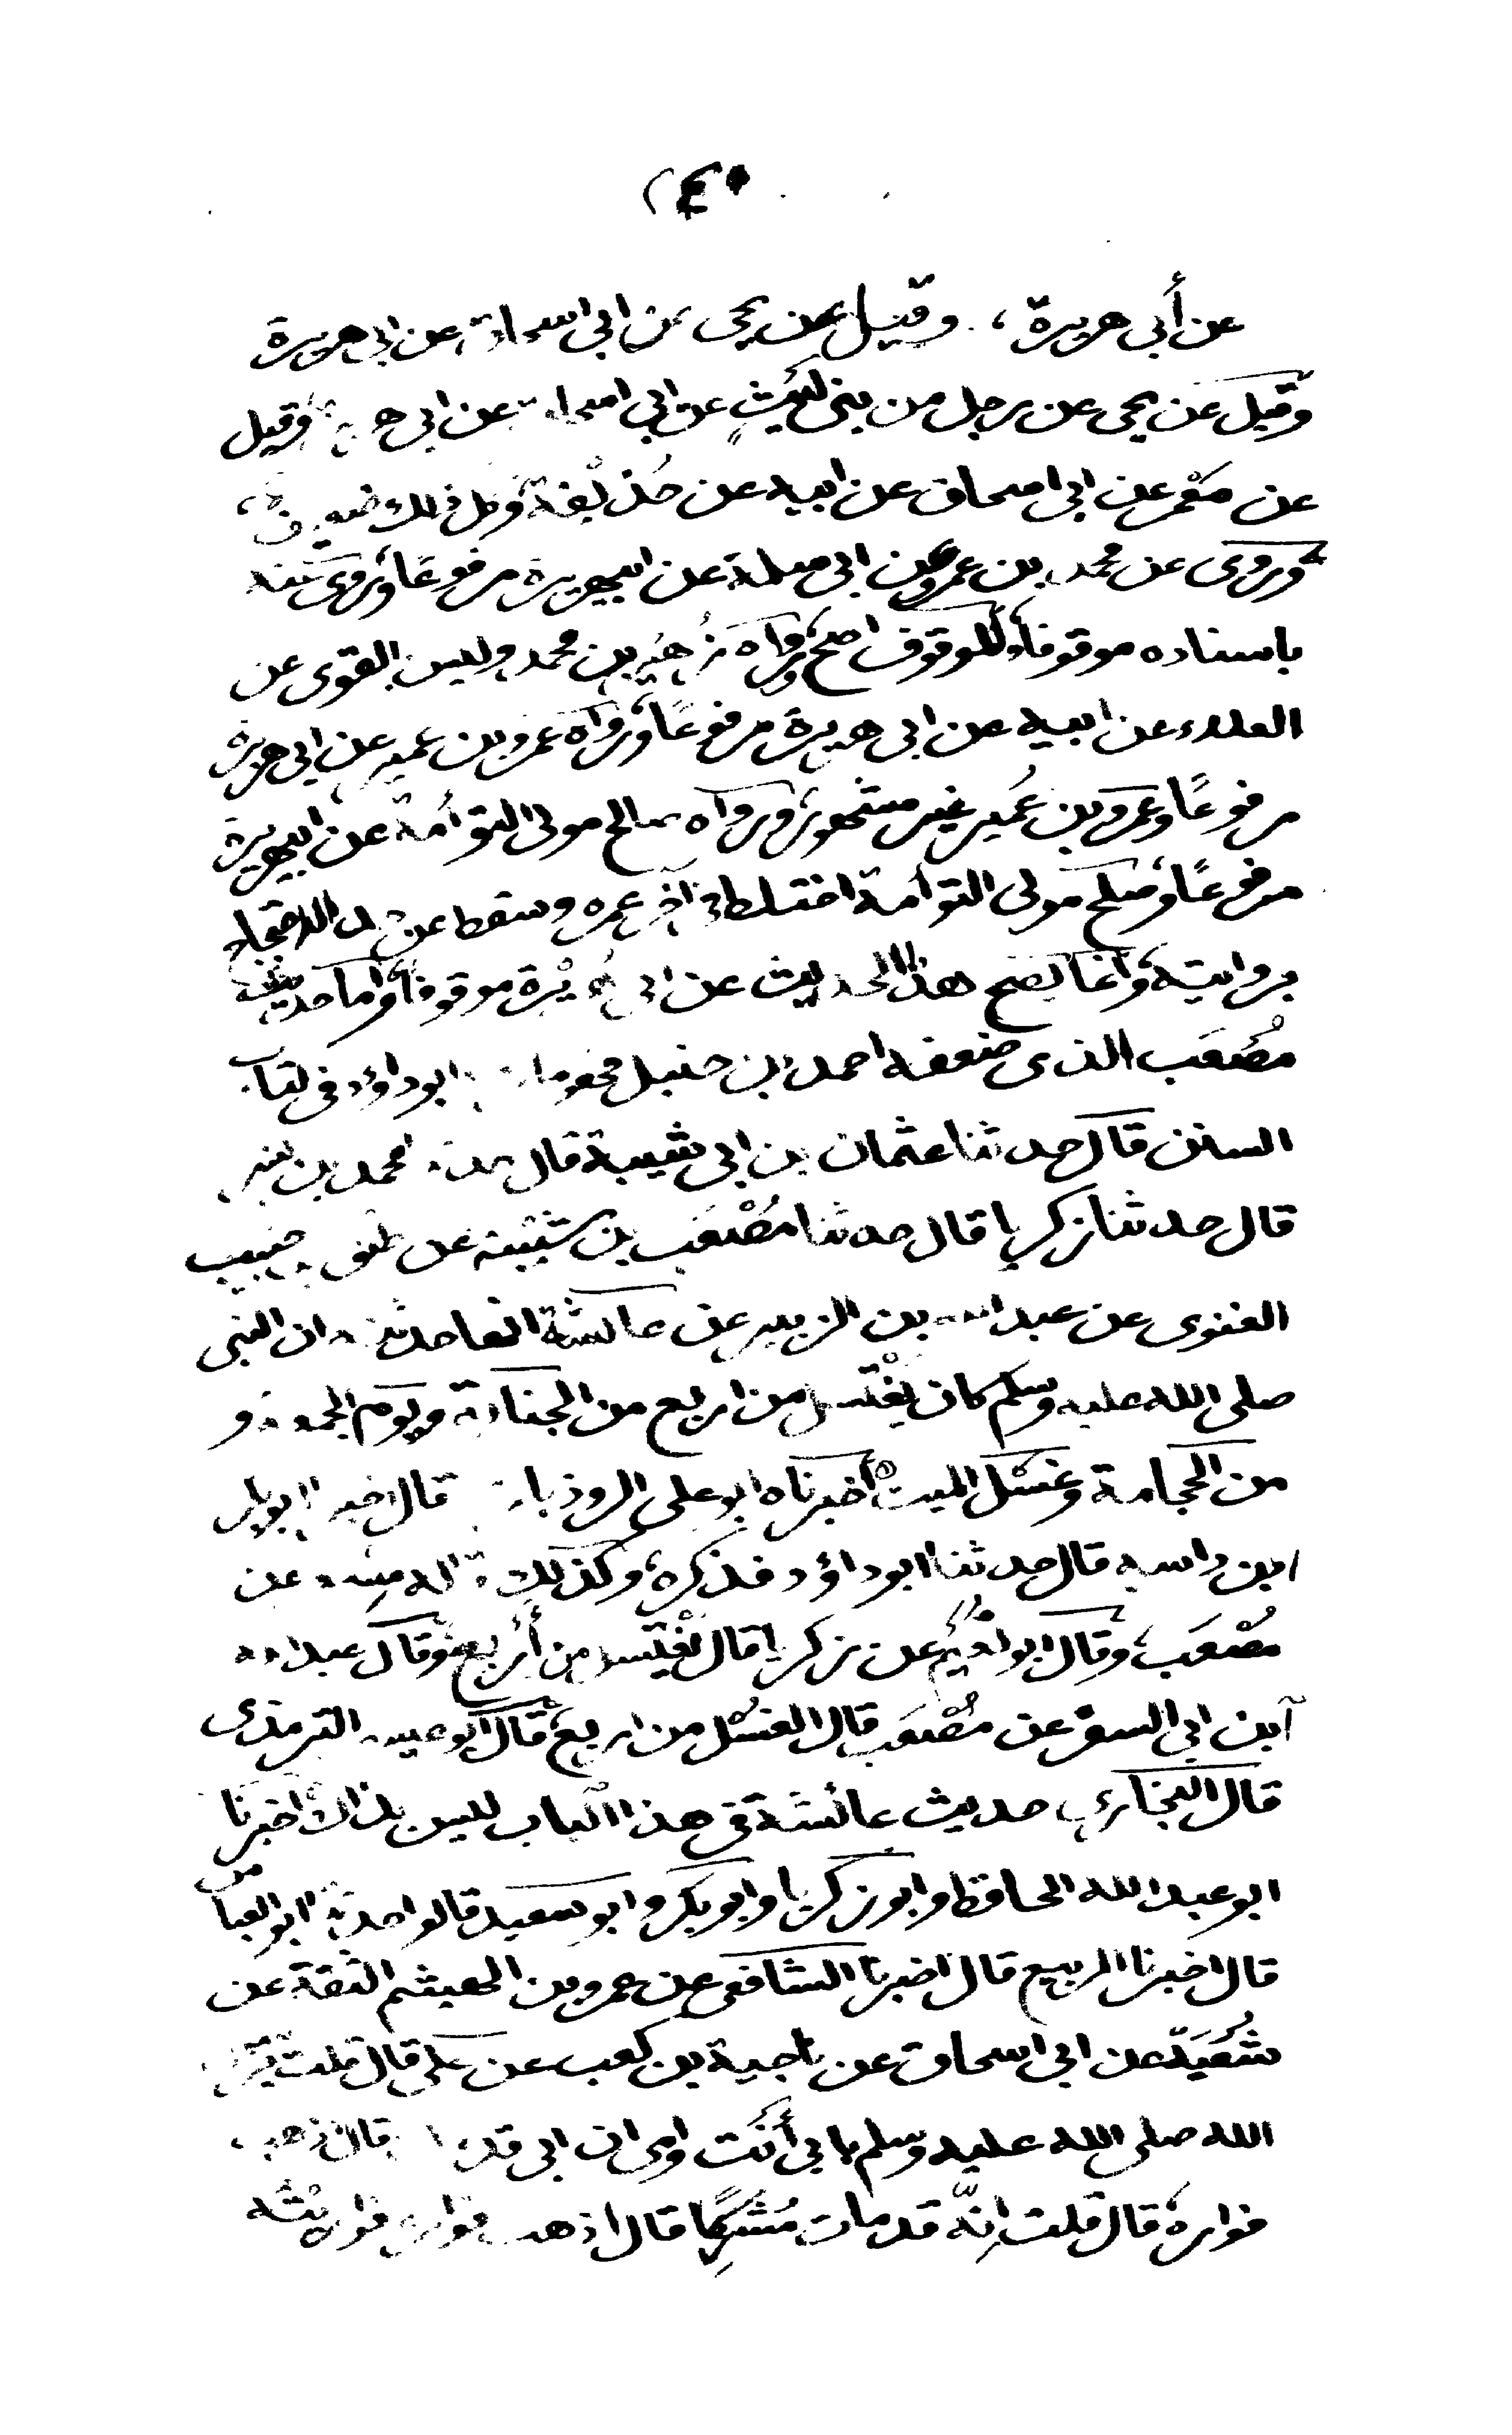 عن أبى هريرة، وقيل عن يحى عن ابى اسحاق عن ابى هريرة
وقيل عن يحى عن رجل من بنى ليث عن ابى اسحاق عن ابى وقيل
عن معمر عن ابى اسحاق عن ابيه عن حذيفة، وكل ذلك ضعيف،
وروى عن محمد بن عمرو عن ابى سلمة عن ابيهريرة مرفوعًا، وروى عنه
باسناده موقوفا، والموقوف اصح، ورواه زهير بن محمد وليس بالقوى عن
العلاء عن ابيه عن ابى هريرة مرفوعًا، ورواه عمرو بن عمير عن ابى هريرة
مرفوعًا وعمرو بن عُمير غير مشهور، ورواه صالح مولى التوأمة عن ابيهريرة
مرفوعًا، وصلح مولى التوأمة اختلط فى آخر عمره وسقط عن الاحتجاج
بروايته، وانما يصح هذا الحديث عن ابى هريرة موقوفا، واما حديث
مُصْعَب الذى ضعفه احمد بن حنبل فهو ابوداؤد فى كتاب
السنن قال حدثنا عثمان بن ابى شيبة قال محمد بن بشر
قال حدثنا زكريا قال حدثنا مُصْعَب بن شَيْبة عن طلق حبيب
العنزى عن عبدالله بن الزبير عن عائشة انها حدثته ان النبى
صلى الله عليه وسلم كان يغْتسل من اربع من الجنابة ويوم الجمعة و
من الحجامة وغسْل الميت أخبرناه ابوعلى الروذبارى قال ابوبكر
ابن داسه قال حدثنا ابوداؤد فذكره، وكذلك عن
مُصْعَب، وقال ابونُعيم عن زكريا قال يُغْتسل من أربع، وقال عبدالله
ابن ابى السفر عن مُصْعَب قال الغسْل من اربع، قال ابوعيسى الترمذى
قال البخارى حديث عائشة فى هذا الباب ليس بذاك، اخبرنا
ابوعبدالله الحافظ وابوزكريا وابوبكر وابوسعيد قالوا حدثنا ابوالعباس
قال اخبرنا الربيع قال اخبرنا الشافعى عن عمرو بن الهيثم الثقة عن
شُعْبَة عن ابى اسحاق عن ناجية بن كعب عن على قال قلت
الله صلى الله عليه وسلم بابى أنت وامى ان ابى قد قال
فواره، قال قلت إنّه قد مات مُشْرِكًا قال اذهب فواره، فواريْته